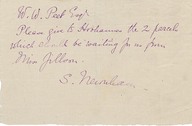 W. W. Peek Esq.
Please give to Horshaman the 2 parcels
which should be waiting for me from
Miss Jillson.
S. Newnham